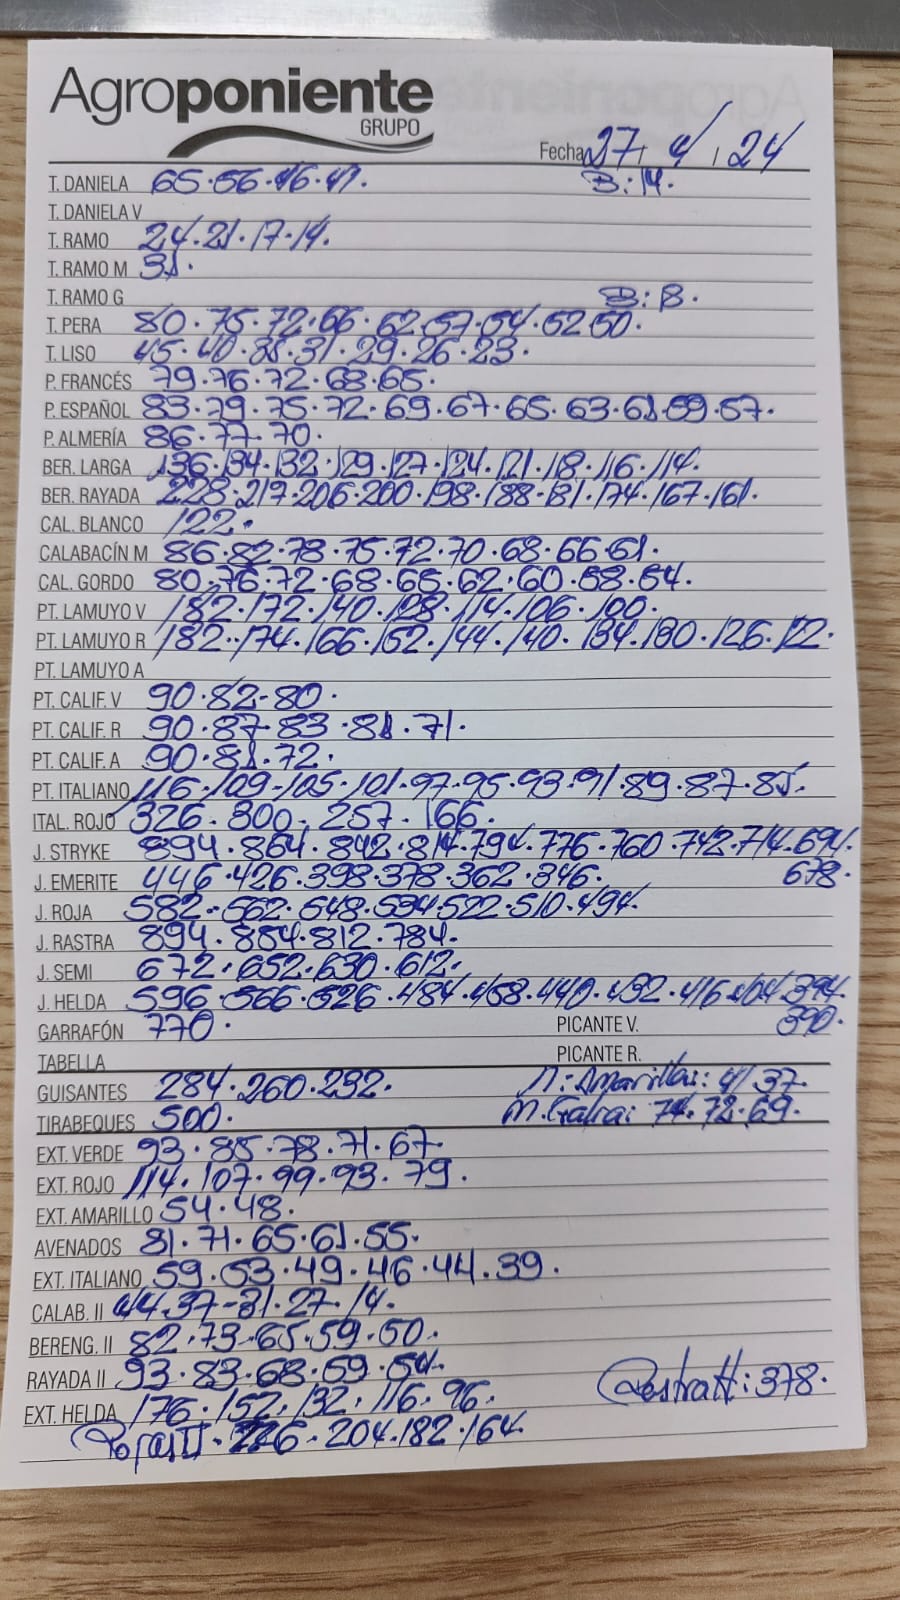 Agroponiente
GRUPO
Fecha 27 / 4 / 24
T. DANELA 65·56·46·41.
B: 14.
T. DANIELA V
T. RAMO 24·21·17·14.
T. RAMO M 31.
T. RAMO G B: 8.
T. PERA 80·75·72·66·62·57·54·52·50.
T. LISO 45·40·38·31·29·26·23.
P. FRANCÉS 79·76·72·68·65.
P. ESPAÑOL 83·79·75·72·69·67·65·63·61·59·57.
P. ALMERÍA 86·77·70.
BER. LARGA 136·134·132·129·127·124·121·118·116·114.
BER. RAYADA 228·217·206·200·198·188·181·174·167·161.
CAL. BLANCO 122.
CALABACÍN M 86·82·78·75·72·70·68·66·61.
CAL. GORDO 80·76·72·68·65·62·60·58·54.
PT. LAMUYO V 182·172·140·128·114·106·100.
PT. LAMUYO R 182·174·166·152·144·140·134·130·126·122.
PT. LAMUYO A
PT. CALIF. V 90·82·80.
PT. CALIF. R 90·87·83·81·71.
PT. CALIF. A 90·81·72.
PT. ITALIANO 116·109·105·101·97·95·93·91·89·87·85.
ITAL. ROJO 326·300·257·166.
J. STRYKE 894·864·842·814·794·776·760·742·714·694.
678.
J. EMERITE 446·426·398·378·362·346.
J. ROJA 582·562·548·534·522·510·494.
J. RASTRA 894·854·812·784.
J. SEMI 672·652·630·612.
J. HELDA 596·566·526·484·458·440·432·416·404·394.
390.
GARRAFÓN 770. PICANTE V.
TABELLA PICANTE R.
GUISANTES 284·260·232. M: Amarilla: 41 37.
TIRABEQUES 500. M. Galia: 74·72·69.
EXT. VERDE 93·85·78·71·67.
EXT. ROJO 114·107·99·93·79.
EXT. AMARILLO 54·48.
AVENADOS 81·71·65·61·55.
EXT. ITALIANO 59·53·49·46·44·39.
CALAB. II 44·37·31·27·14.
BERENG. II 82·73·65·59·50.
RAYADA II 93·83·68·59·54.
EXT. HELDA 176·152·132·116·96.
II: 378.
Roja II· 226·204·182·164.